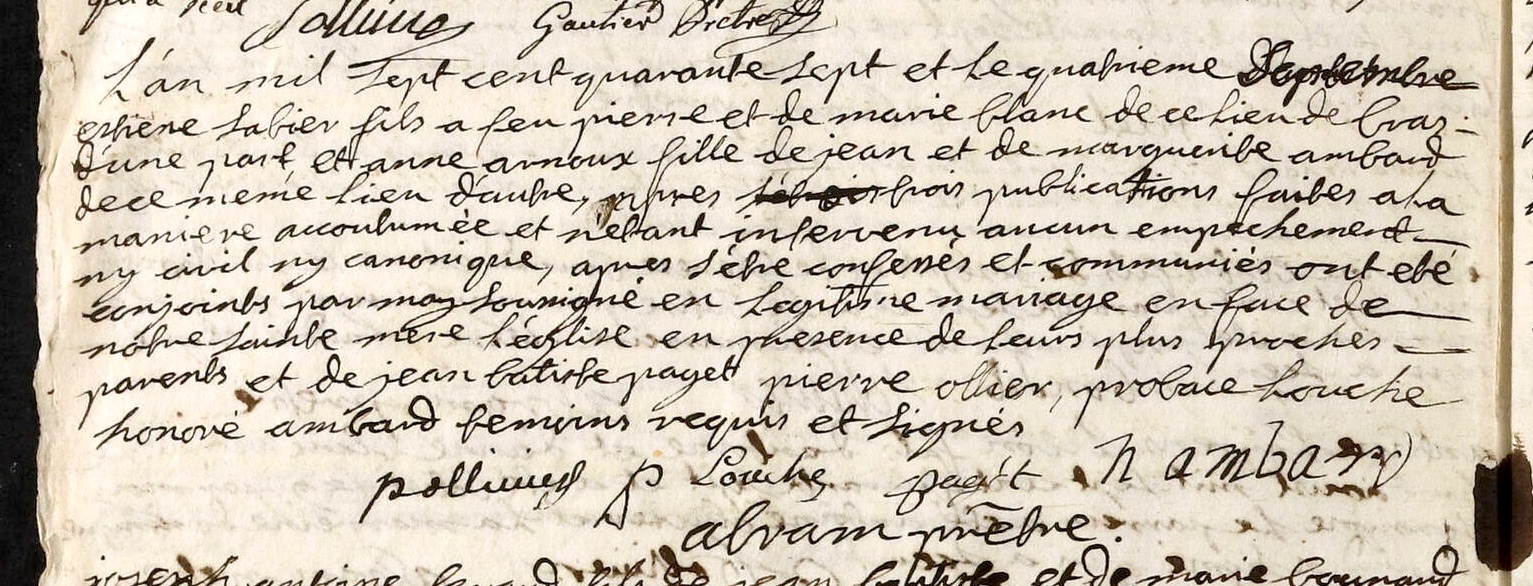 Gautier Prêtre
L'an mil sept cent quarante sept et le quatrieme Septembre
estiene sabier fils a feu pierre et de marie blanc de ce lieu de bras
d'une part et anne arnoux fille de jean et de marguerite ambard
de ce meme lieu d'autre, apres trois publications faites a la
maniere accoutumée et n'etant intervenu aucun empechement
ny civil ny canonique, apres s'etre confessés et communiés ont eté
conjoints par moy soussigné en legitime mariage en face de
notre sainte mere l'église en presence de leurs plus proches
parents et de jean batiste paget pierre ollier, probace louche
honoré ambard temoins requis et signés
p ollivier P Louche pagét h ambard
abram prêtre.
joseph antoine fils de jean batiste et de marie